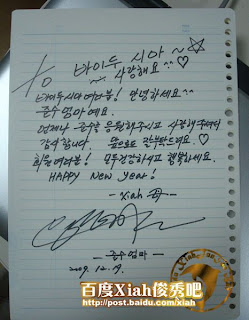 to 바이두 시아 ~ ☆
~ 사랑해요^^ ♡
바이두시아 여러분! 안녕하세요^^
준수엄마예요.
언제나 준수를 응원해주시고 사랑해 주셔서
감사합니다. 앞으로도 잘 부탁드려요. ♡
회원여러분! 모두 건강하시고 행복하세요.
HAPPY New year!
- Xiah 준수 -
- 준수엄마 -
2009. 12. 19.
百度Xiah俊秀吧
http://post.baidu.com/xiah